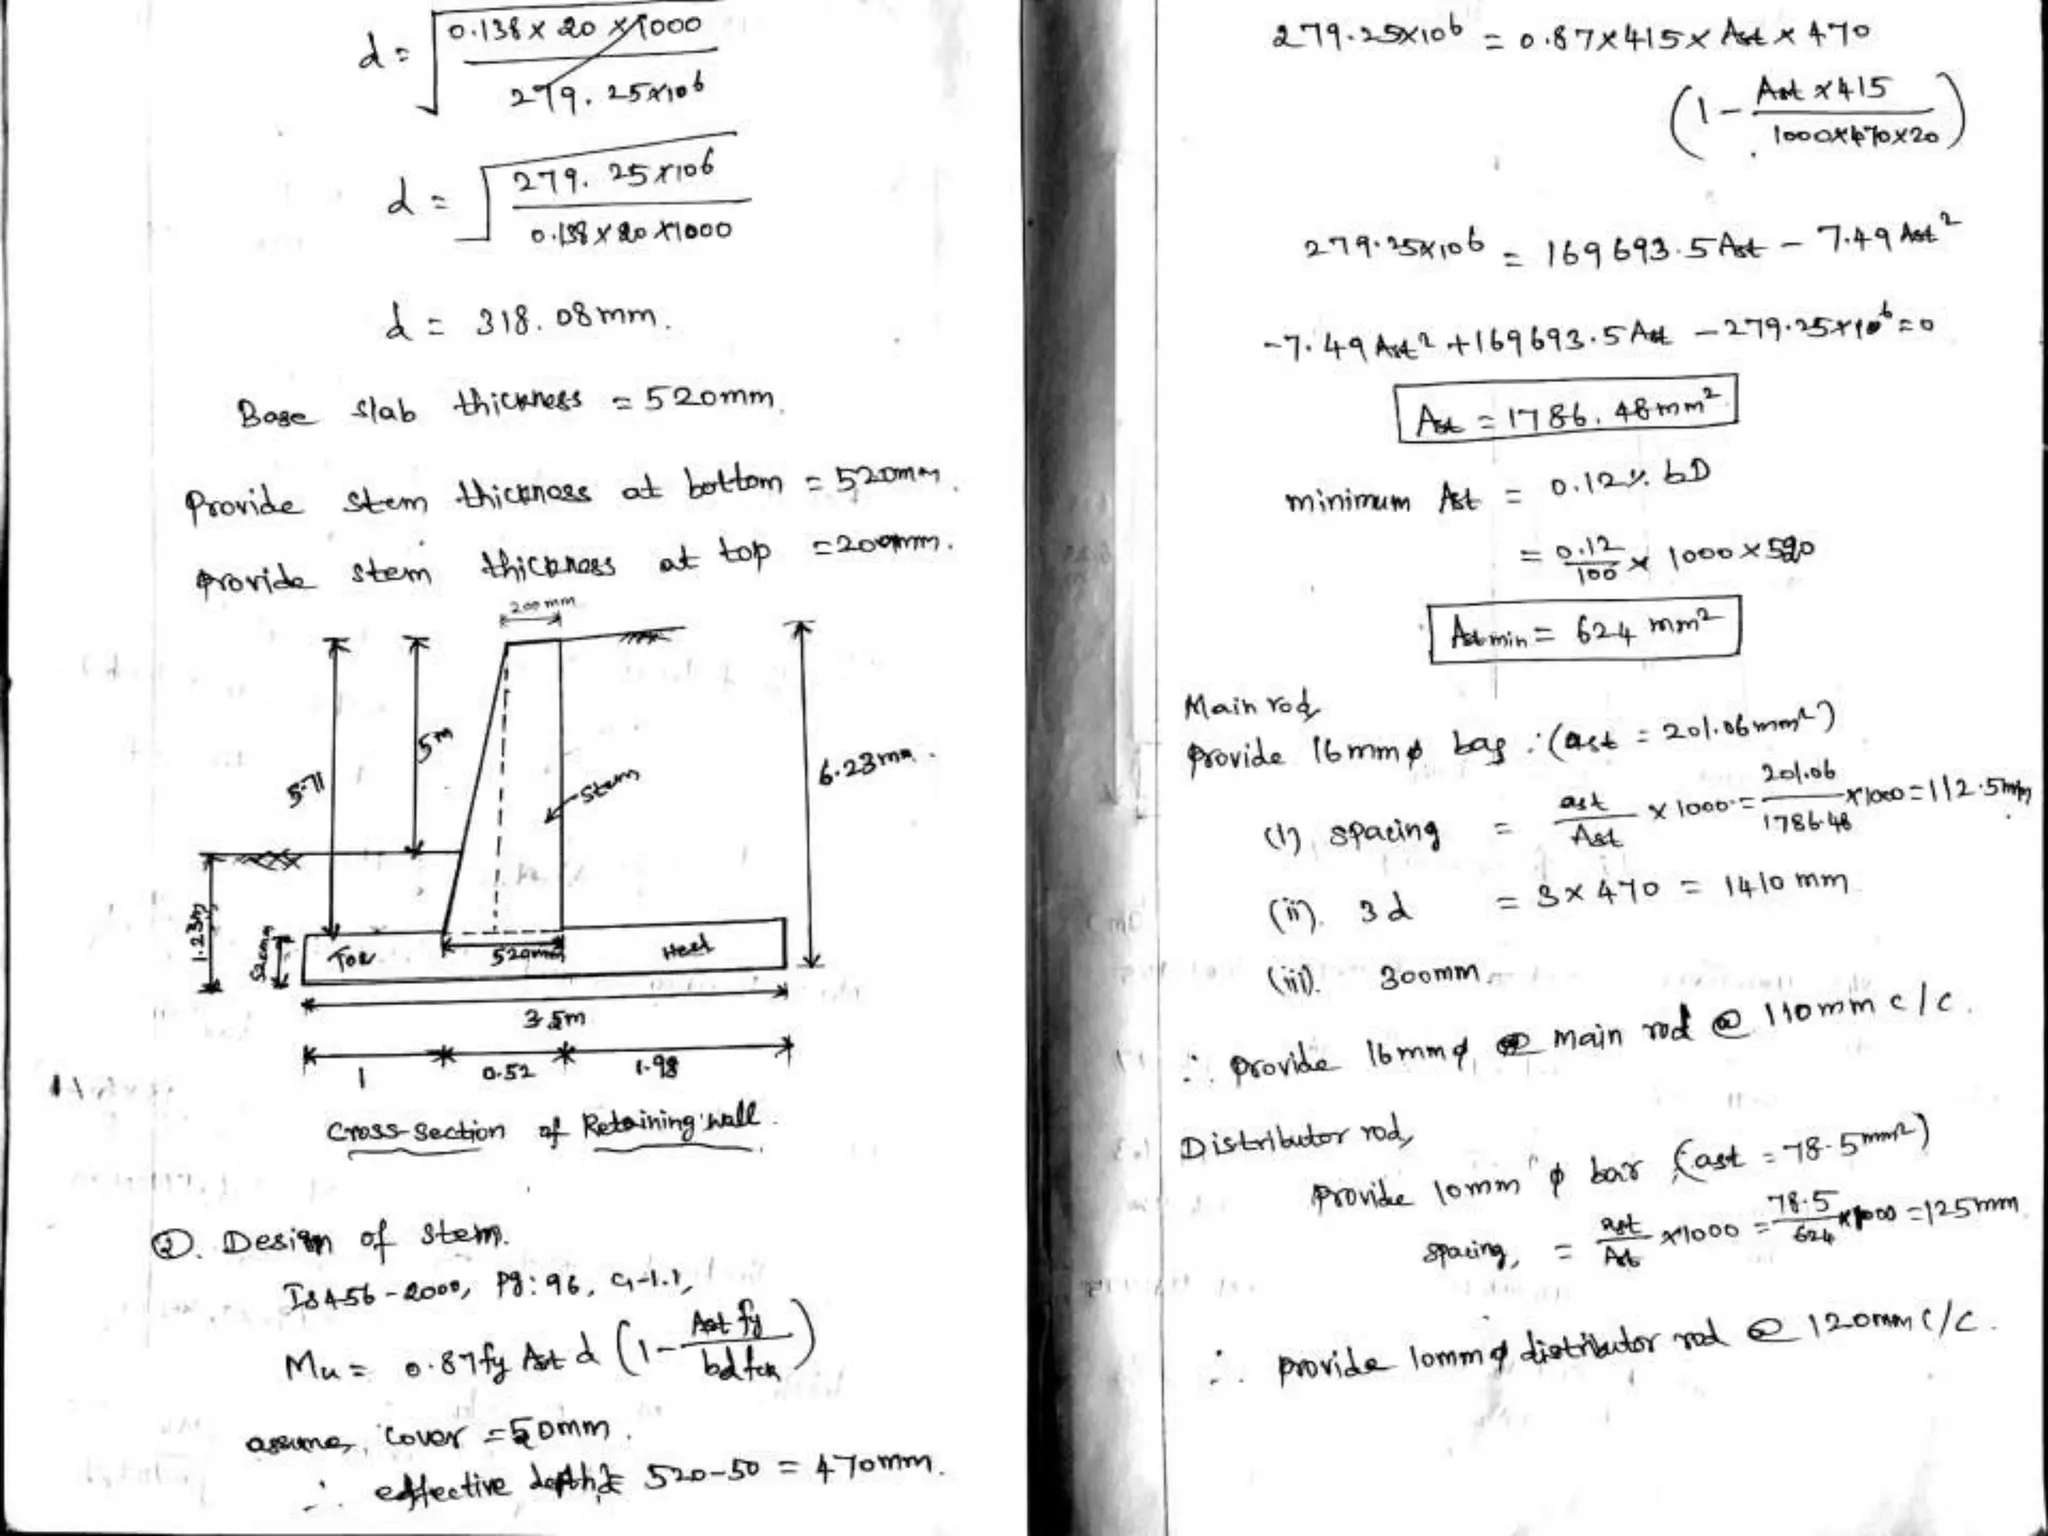 d = √ 0.138 x 20 x 1000 / 279.25x10⁶
d = √ 279.25x10⁶ / 0.138 x 20 x1000
d = 318.08mm.
Base slab thickness = 520mm.
Provide stem thickness at bottom = 520mm.
Provide stem thickness at top = 200mm.
200 mm
5.71
5m
Stem
6.23mm.
1.23m
520mm
Toe
520mm
Heel
3.5m
1
0.52
1.98
Cross-Section of Retaining wall.
②. Design of stem.
IS456-2000, Pg: 96, G-1.1,
Mu = 0.87fy Ast d (1 - Ast fy / bd fck)
assume, cover = 50mm.
∴ effective depth = 520-50 = 470mm.
279.25x10⁶ = 0.87x415x Ast x 470
(1 - Ast x415 / 1000x470x20)
279.25x10⁶ = 169693.5Ast - 7.49 Ast²
-7.49 Ast² +169693.5 Ast - 279.25x10⁶ = 0
Ast = 1786.48mm²
minimum Ast = 0.12% bD
= 0.12/100 x 1000 x 520
Ast min = 624 mm²
Main rod,
Provide 16mm φ bar (ast = 201.06mm²)
(i) spacing = ast/Ast x 1000 = 201.06/1786.48 x1000 = 112.5mm
(ii). 3d = 3x 470 = 1410 mm
(iii). 300mm.
∴ Provide 16mmφ main rod @ 110mm c/c.
Distributor rod,
Provide 10mm φ bar (ast = 78.5mm²)
Spacing, = ast/Ast x1000 = 78.5/624 x1000 = 125mm
∴ provide 10mmφ distributor rod @ 120mm c/c.